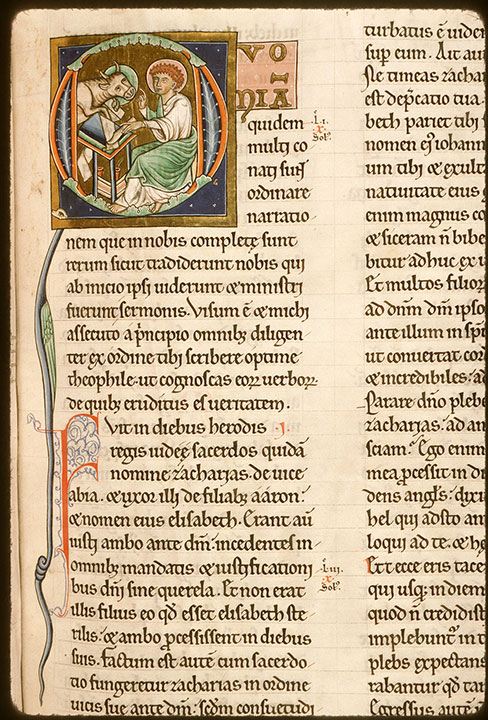 QVO
NIA
quidem
multi co
nati sūt
ordinare
narratio
nem que in nobis complete sunt
rerum sicut tradiderunt nobis qui
ab inicio ipsi uiderunt & ministri
fuerunt sermonis. Visum ē & michi
assecuto a principio omnib; diligen
ter ex ordine tibi scribere optime
theophile. ut cognoscas eoꝝ uerboꝝ.
de quib; eruditus es ueritatem.
Fuit in diebus herodis .i.
regis iudeę sacerdos quidā
nomine zacharias. de uice
abia. & uxor illi de filiab; aaron.
& nomen eius elisabeth. Erant aū
iusti ambo ante dm̄. incedentes in
omnib; mandatis & iustification
bus dn̄i sine querela. Et non erat
illis filius eo qd̄ esset elisabeth ste
rilis. & ambo p̄cessissent in diebus
suis. Factum est autē cum sacerdo
tio fungeretur zacharias in ordine
uicis sue ante dm̄. sedm consuetudi
turbatus ē uiden
sup eum. Ait aut
ne timeas zachar
est dep̄catio tua.
beth pariet tibi
nomen eꝰ iohann
um tibi & exult
natiuitate eius
enim magnus co
& siceram n̄ bibe
bitur adhuc ex u
Et multos filior
ad dn̄m dm̄ ipso
ante illum in spi
ut conuertat cor
& incredibiles. ad
Parare dn̄o plebe
zacharias. ad an
sciam. Ego enim
mea p̄cessit in di
dens angls. dixi
hel qui adsto an
loqui ad te. & h
Et ecce eris tace
qui usq; in diem
quod n̄ credidist
implebunt' in t
plebs expectans
rabantur qd̄ tar
Egressus autē